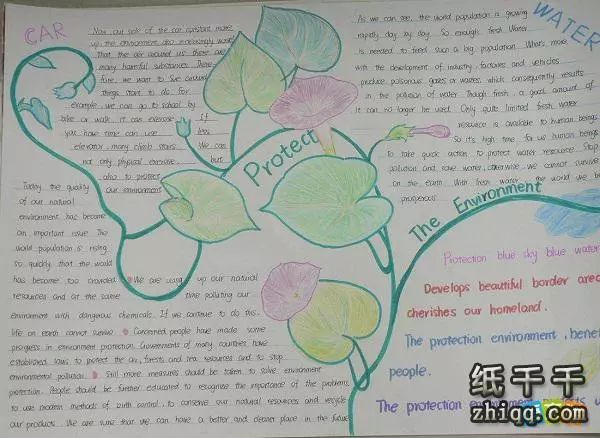 CAR
Now, our side of the car constant make
up the environment also increasingly worse
That the air around us there are
many harmful substances. There
fore, we want to live around
things start to do. for
example, we can go to school by
bike or walk, it can exercise. If
you have time can use less
elevator, many climb stairs. We can
not only physical exercise, but
also to protect
our environment
Protect
The Environment
WATER
As we can see, the world population is growing
rapidly day by day. So enough fresh Water
is needed to feed such a big population. What's more,
with the development of industry, factories and vehicles
produce poisonous gases or wastes, which consequently results
in the pollution of water. Though fresh, a good amount of
it can no longer be used. Only quite limited fresh water
resource is available to human beings
So it's high time for us human beings
to take quick action to protect water resource. Stop
pollution and save water, otherwise, we cannot survive
on the earth. With fresh water, the world we be
prosperous.
Today, the quality
of our natural
environment has become
an important issue. The
world population is rising
so quickly that the world
has become too crowded. We are using up our natural
resources and at the same time polluting our
environment with dangerous chemicals. If we continue to do this,
life on earth cannot survive. Concerned people have made some
progress in environment protection. Governments of many countries have
established laws to protect the air, forests and sea resources and to stop
environmental pollution. Still more measures should be taken to solve environment
protection. People should be further educated to recognize the importance of the problems,
to use modern methods of birth control, to conserve our natural resources and recycle
our products. We are sure that we can have a better and cleaner place in the future
Protection blue sky blue water
Develops beautiful border area
cherishes our homeland.
The protection environment, benef
people.
The protection environment protects u
纸千千
zhiqq.com